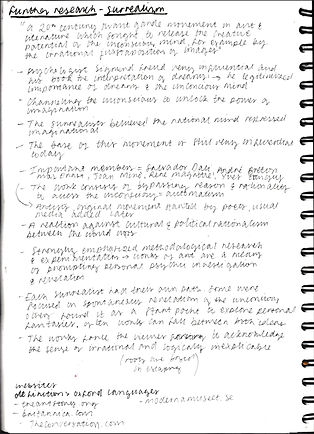 Further research - Surrealism
"a 20th century avant garde movement in art &
literature which sought to release the creative
potential of the unconscious mind, for example by
the irrational juxtaposition of images"
- Psychologist Sigmund Freud very influential and
his book the interpretation of dreams → he legitimized
importance of dreams & the unconscious mind
- Channelling the unconscious to unlock the power of
imagination
- The surrealists believed the rational mind repressed
imagination
- The base of this movement is still very influential
today
- Important members = Salvador Dali, André Breton
Max Ernst, Joan Miró, Rene Magritte, Yves Tanguy
- The work consists of bypassing reason & rationality
to access the unconscious = automatism
original movement started by poets, visual
media added later
- A reaction against cultural & political rationalism
between the world wars
- Strongly emphasized methodological research
& experimentation → works of art are a means
of prompting personal psychic investigation
& revelation
- Each surrealist had their own path. Some were
focused in spontaneous revelation of the unconscious
others found it as a start point to explore personal
fantasies, often works can fall between both ideas
- The works force the viewer to acknowledge
the sense of irrational and logically inexplicable
(roots are based
in
websites
definitions = oxford languages
- theartstory.org
- modernamuseet.se
- britannica.com
- TheConversation.com